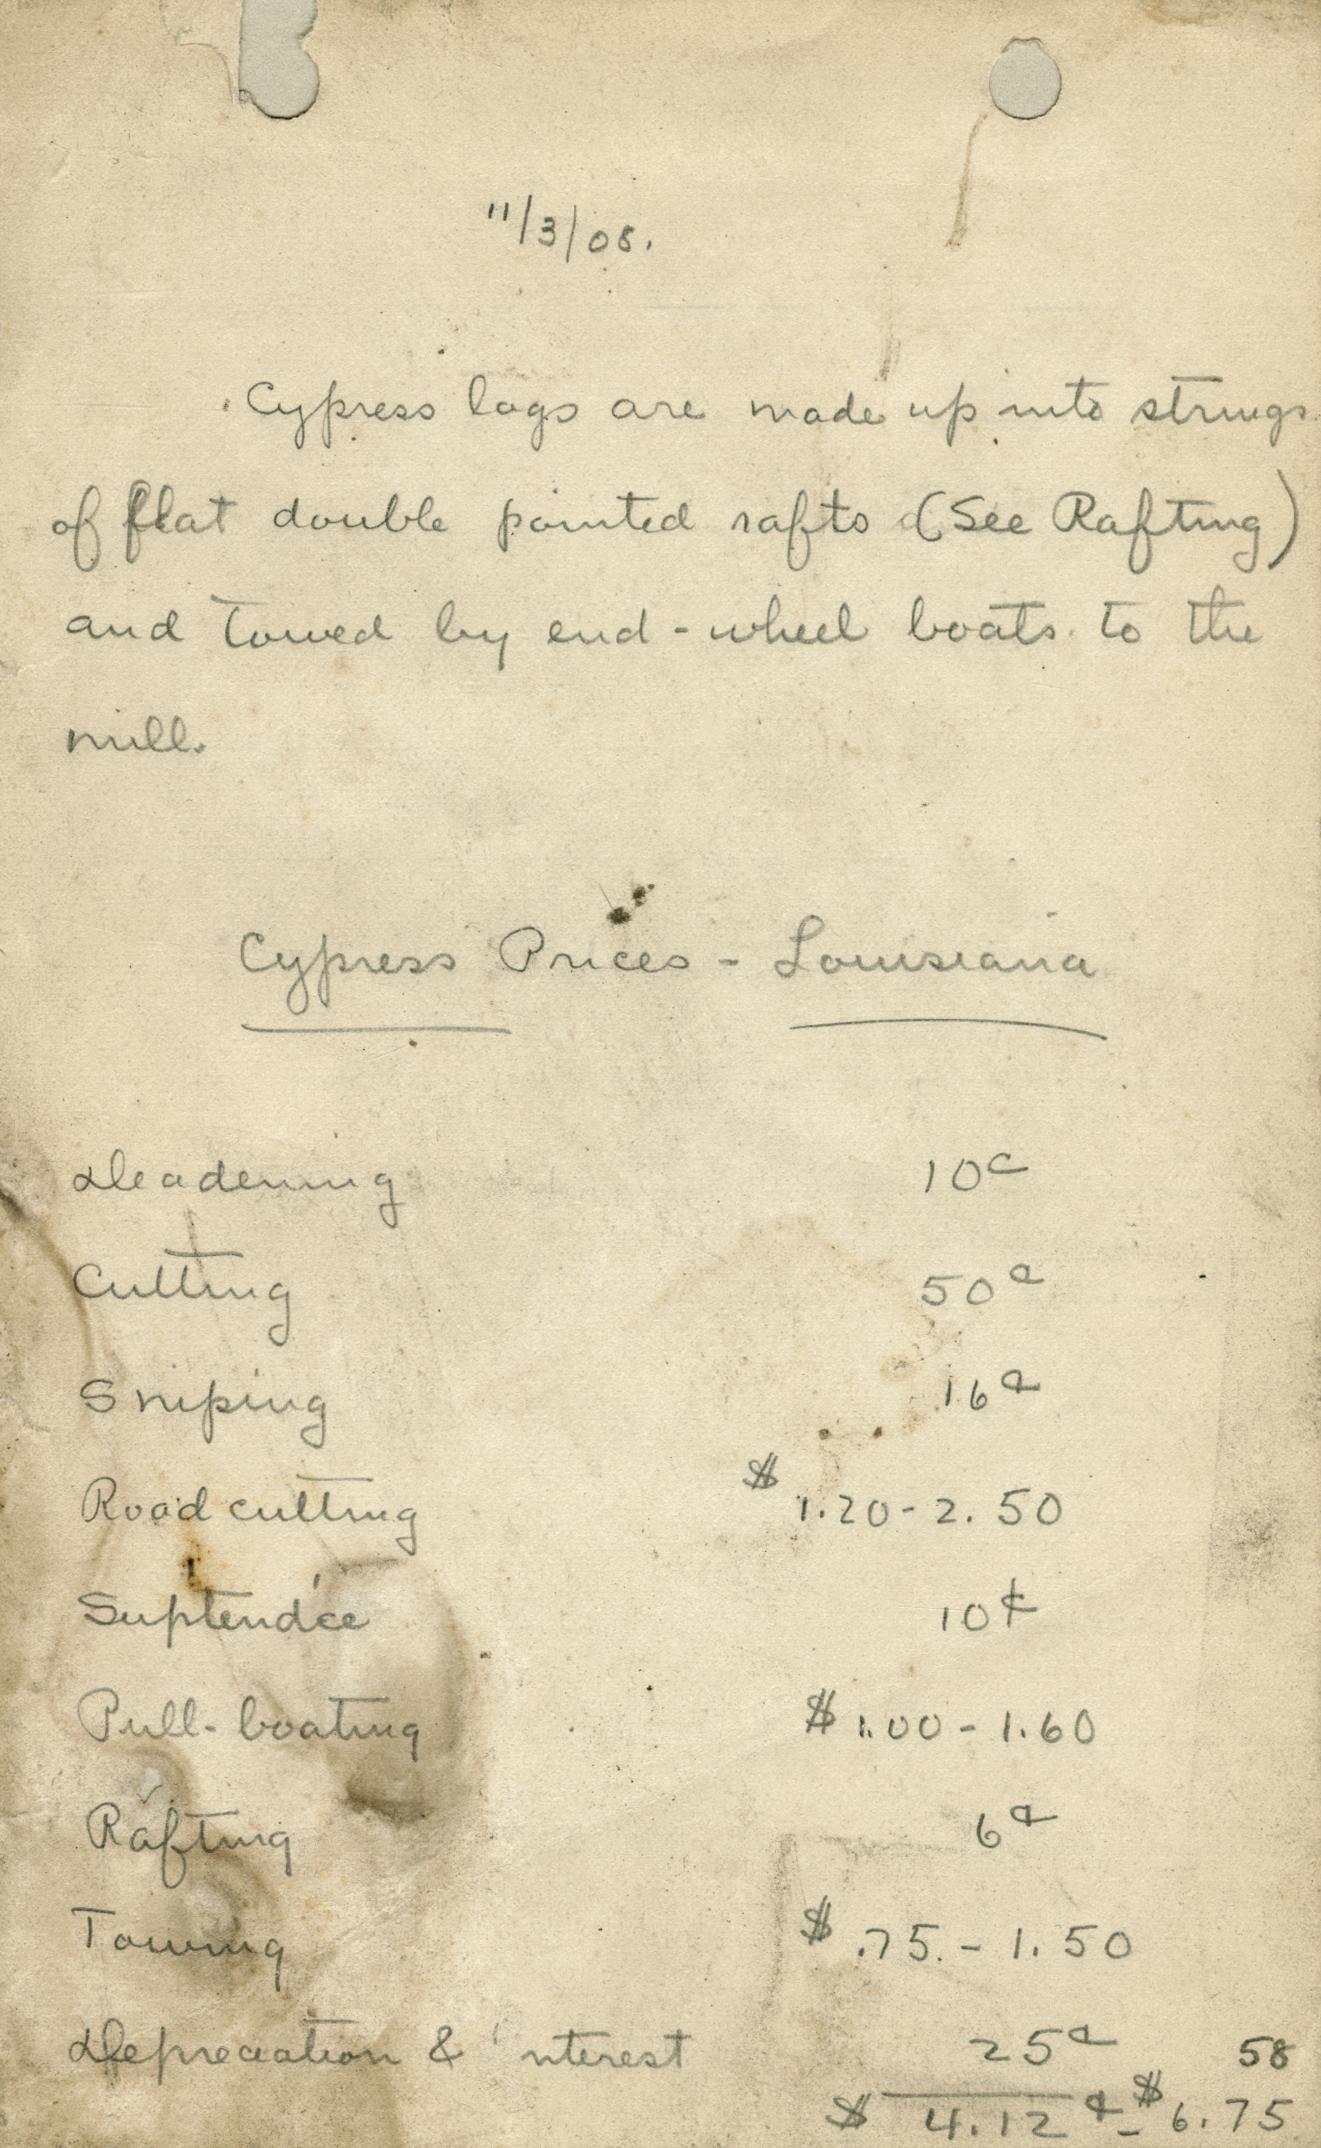 11/3/08.
Cypress logs are made up into strings
of flat double pointed rafts (See Rafting)
and towed by end-wheel boats to the
mill.
Cypress Prices - Louisiana
Deadening 10¢
Cutting 50¢
Sniping 16¢
Road cutting $1.20-2.50
Suptend'ce 10¢
Pull-boating $1.00-1.60
Rafting 6¢
Towing $.75.-1.50
Depreciation & interest 25¢ 58
$4.12¢-$6.75